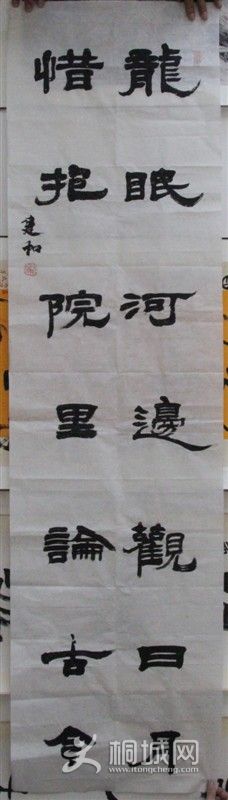 龍眠河邊觀日月
惜抱院里論古今
建和
桐城网
www.itongcheng.com